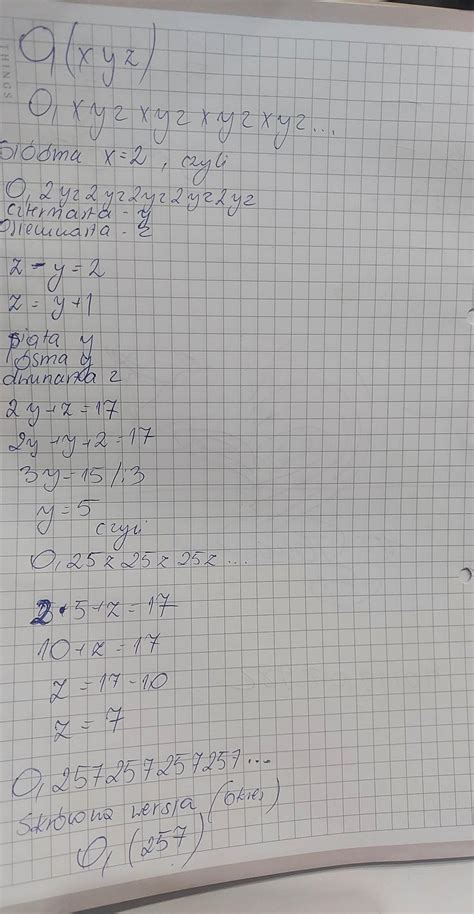 THINGS
0,(xyz)
0, xyz xyz xyz xyz...
siódma x=2, czyli
0, 2yz2yz2yz2yz2yz
czternasta - y
z - y = 2
z = y + 1
piąta y
ósma y
dwunasta z
2y+z=17
2y+y+2=17
3y=15/:3
y=5
czyli
0,25z25z25z...
2·5+z=17
10+z=17
z=17-10
z=7
0,257257257257...
Skrócona wersja (okres)
0,(257)